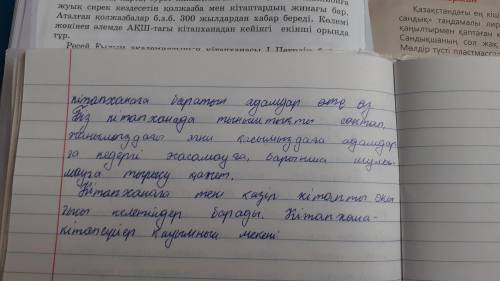 жуық сирек кездесетін қолжазба мен кітаптардың жинағы бар.
Аталған қолжазбалар б.з.б. 300 жылдардан хабар береді. Көлемі
жөнінен әлемде АҚШ-тағы кітапханадан кейінгі екінші орында
тұр.
Қазақстандағы ең кіш
сандық» таңдамалы
қаңылтырмен қаптаған
Сандықшаның сол жақ
Мөлдір түсті пластмасса
кітапханаға баратын адамдар өте аз
Біз кітапханада тыныштықты сақтап,
жанымыздағы яғни қасымыздағы адамдар-
ға кедергі жасамауға, барынша шулы-
мауға тырысу қажет.
Кітапханаға тек қазір кітапты оқы
ғысы келетіндер барады. Кітапхана-
кітапсүйер қауымның мекені